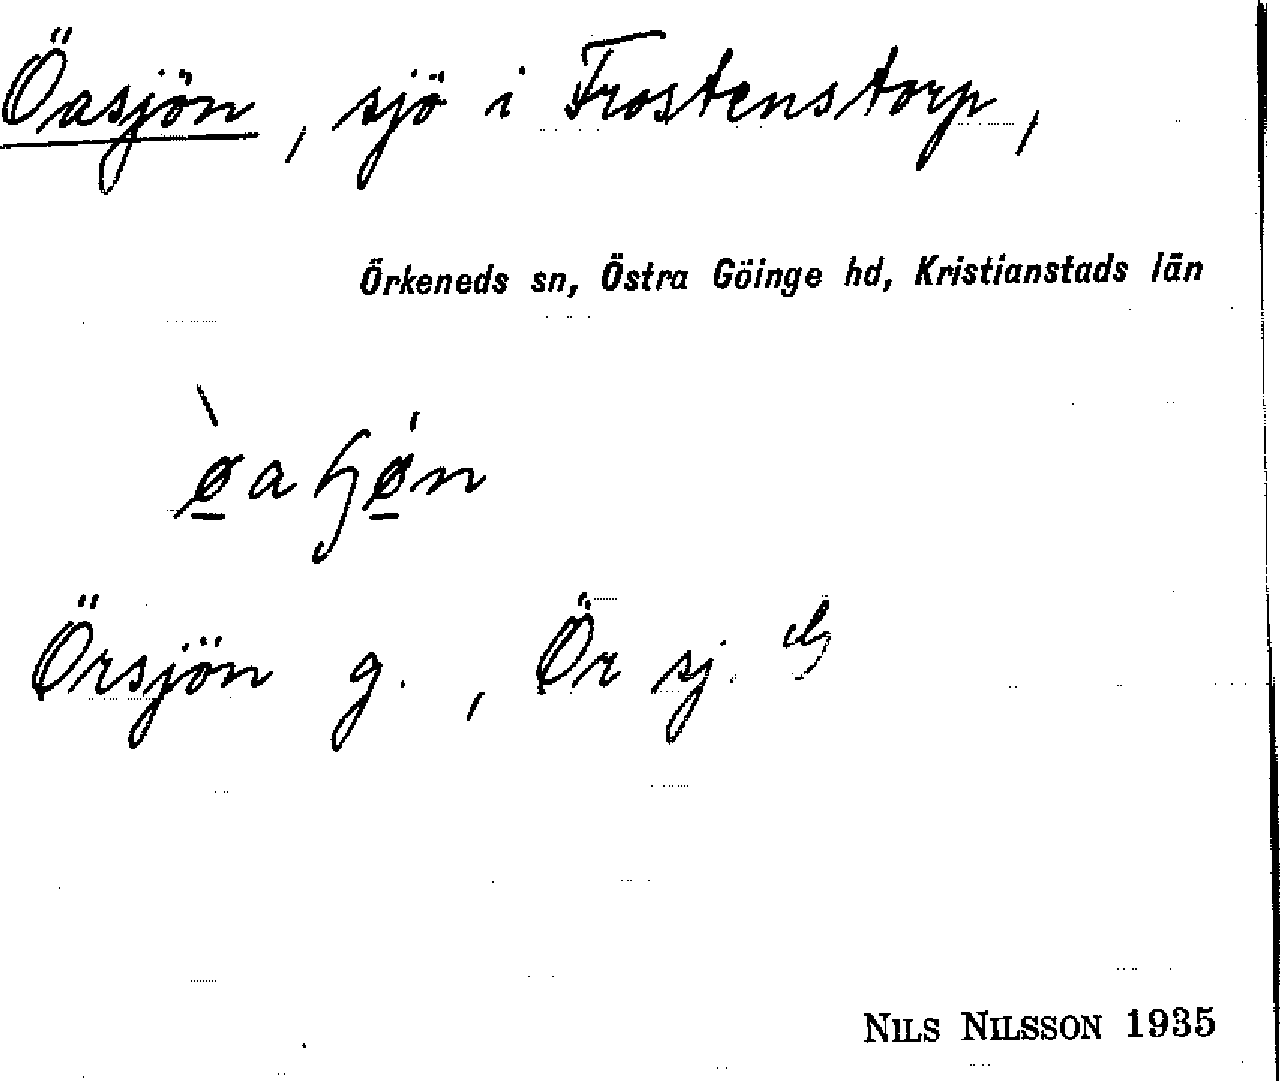 Öasjön, sjö i Frostenstorp,
Örkeneds sn, Östra Göinge hd, Kristianstads län
Örsjön g., Ör sj.
NILS NILSSON 1935